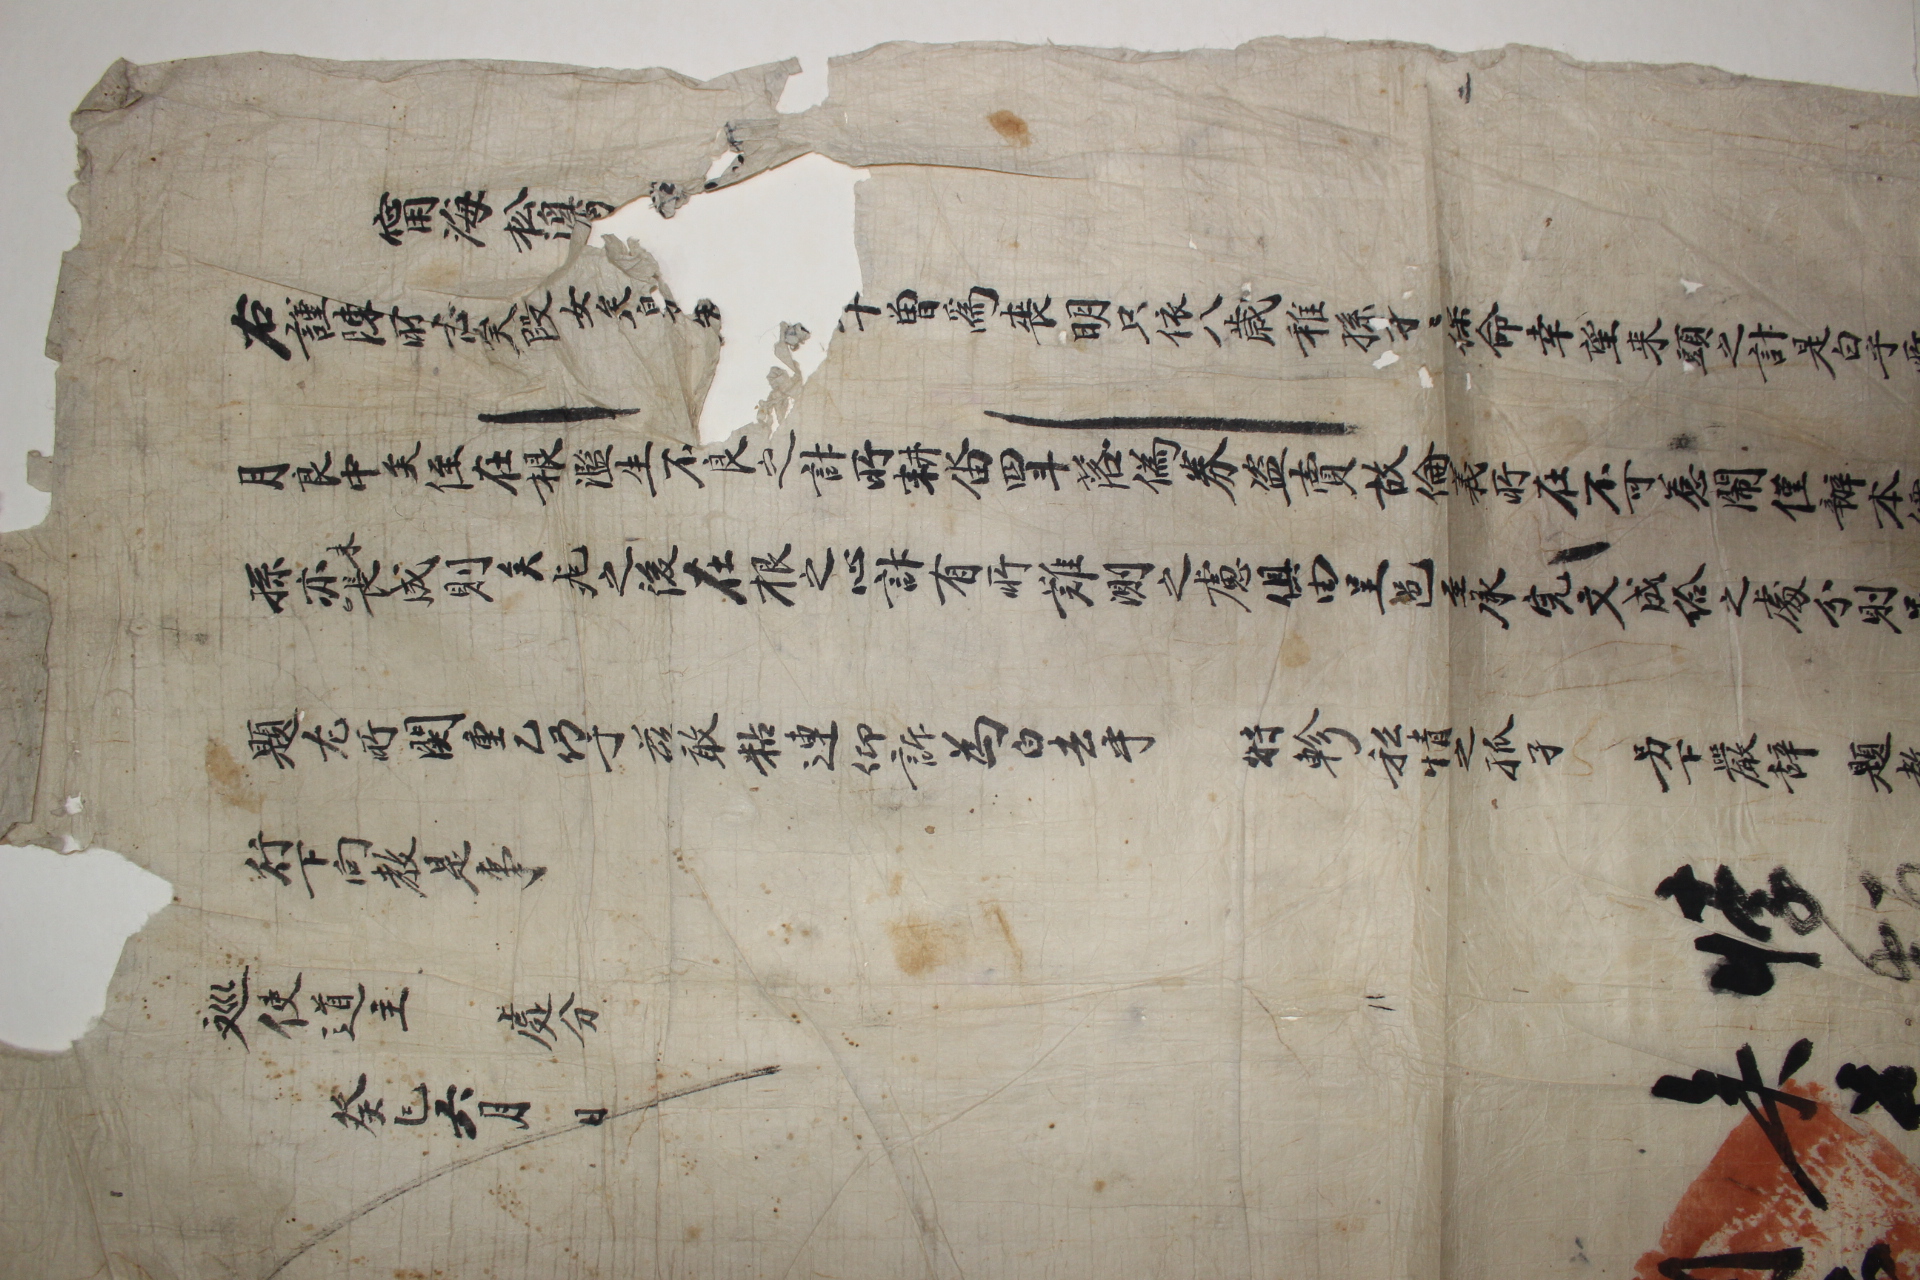 甯海松
右謹陳所志矣段女矣身 十曾爲喪明只依八歲稚孫寸〻保命幸望来頭之計是白乎所
月良中矣侄在根濫生不良之計所耕畓四斗落僞券盗賣故倫義所在不可惹鬧僅辦本
孫亦未長成則矣死之後在根之心計有所難測之慮俱由呈邑至承完文成給之處分則
題尤所関重乙仍于玆敢粘連仰訴爲白去乎 特軫私情之孤孑 另下嚴辞 題教
行下向教是事
巡使道主 處分
癸巳六月 日
悖
矣